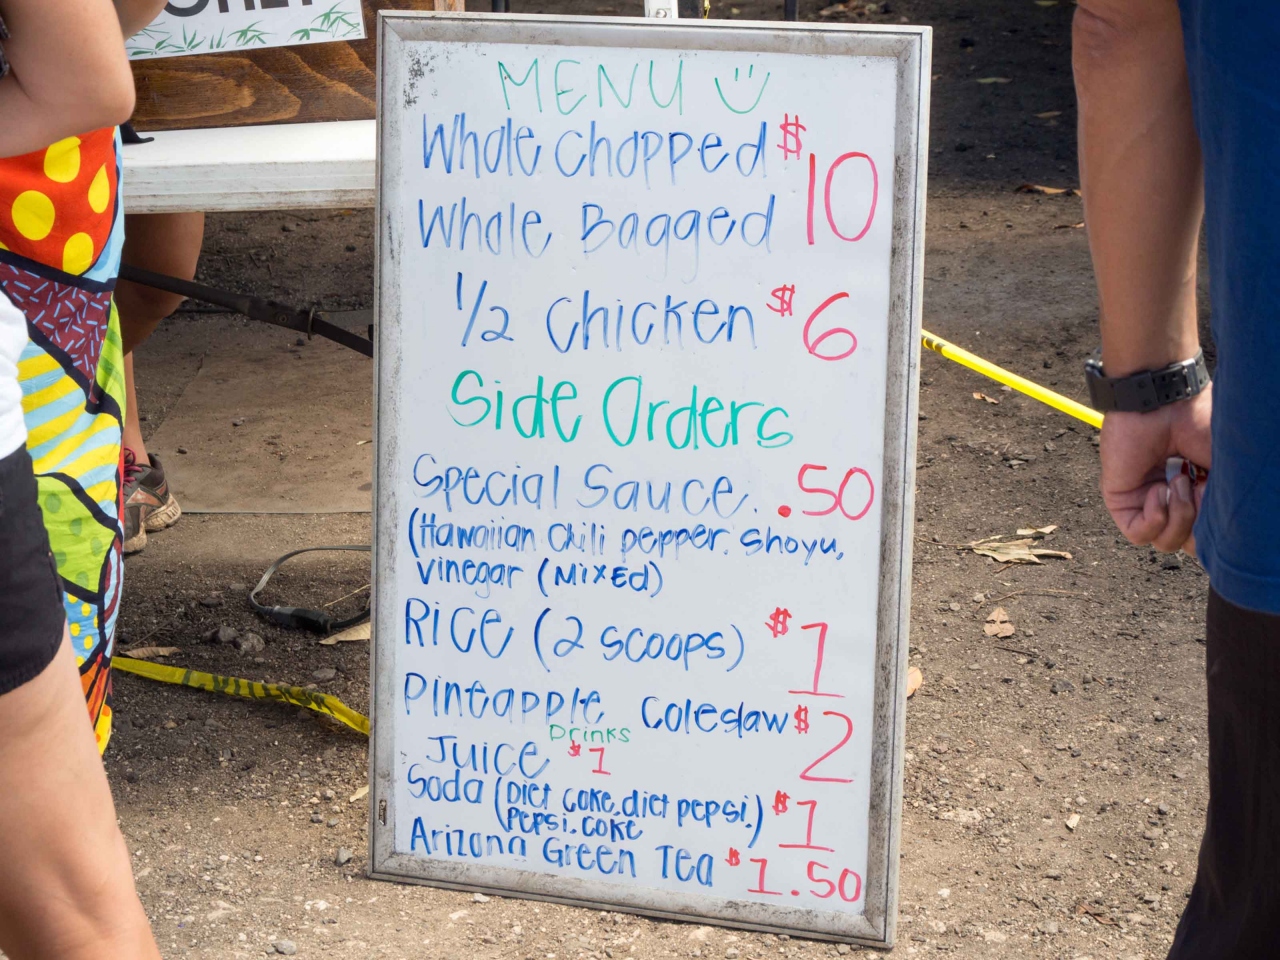 MENU
Whole Chopped $10
Whole Bagged
1/2 Chicken $6
Side Orders
Special Sauce. .50
(Hawaiian Chili pepper, Shoyu,
vinegar (MIXED)
RICE (2 SCOOPS) $1
Pineapple Coleslaw $2
Drinks
Juice $1
Soda (Diet Coke, diet pepsi.) $1
(Pepsi. Coke
Arizona Green Tea $1.50